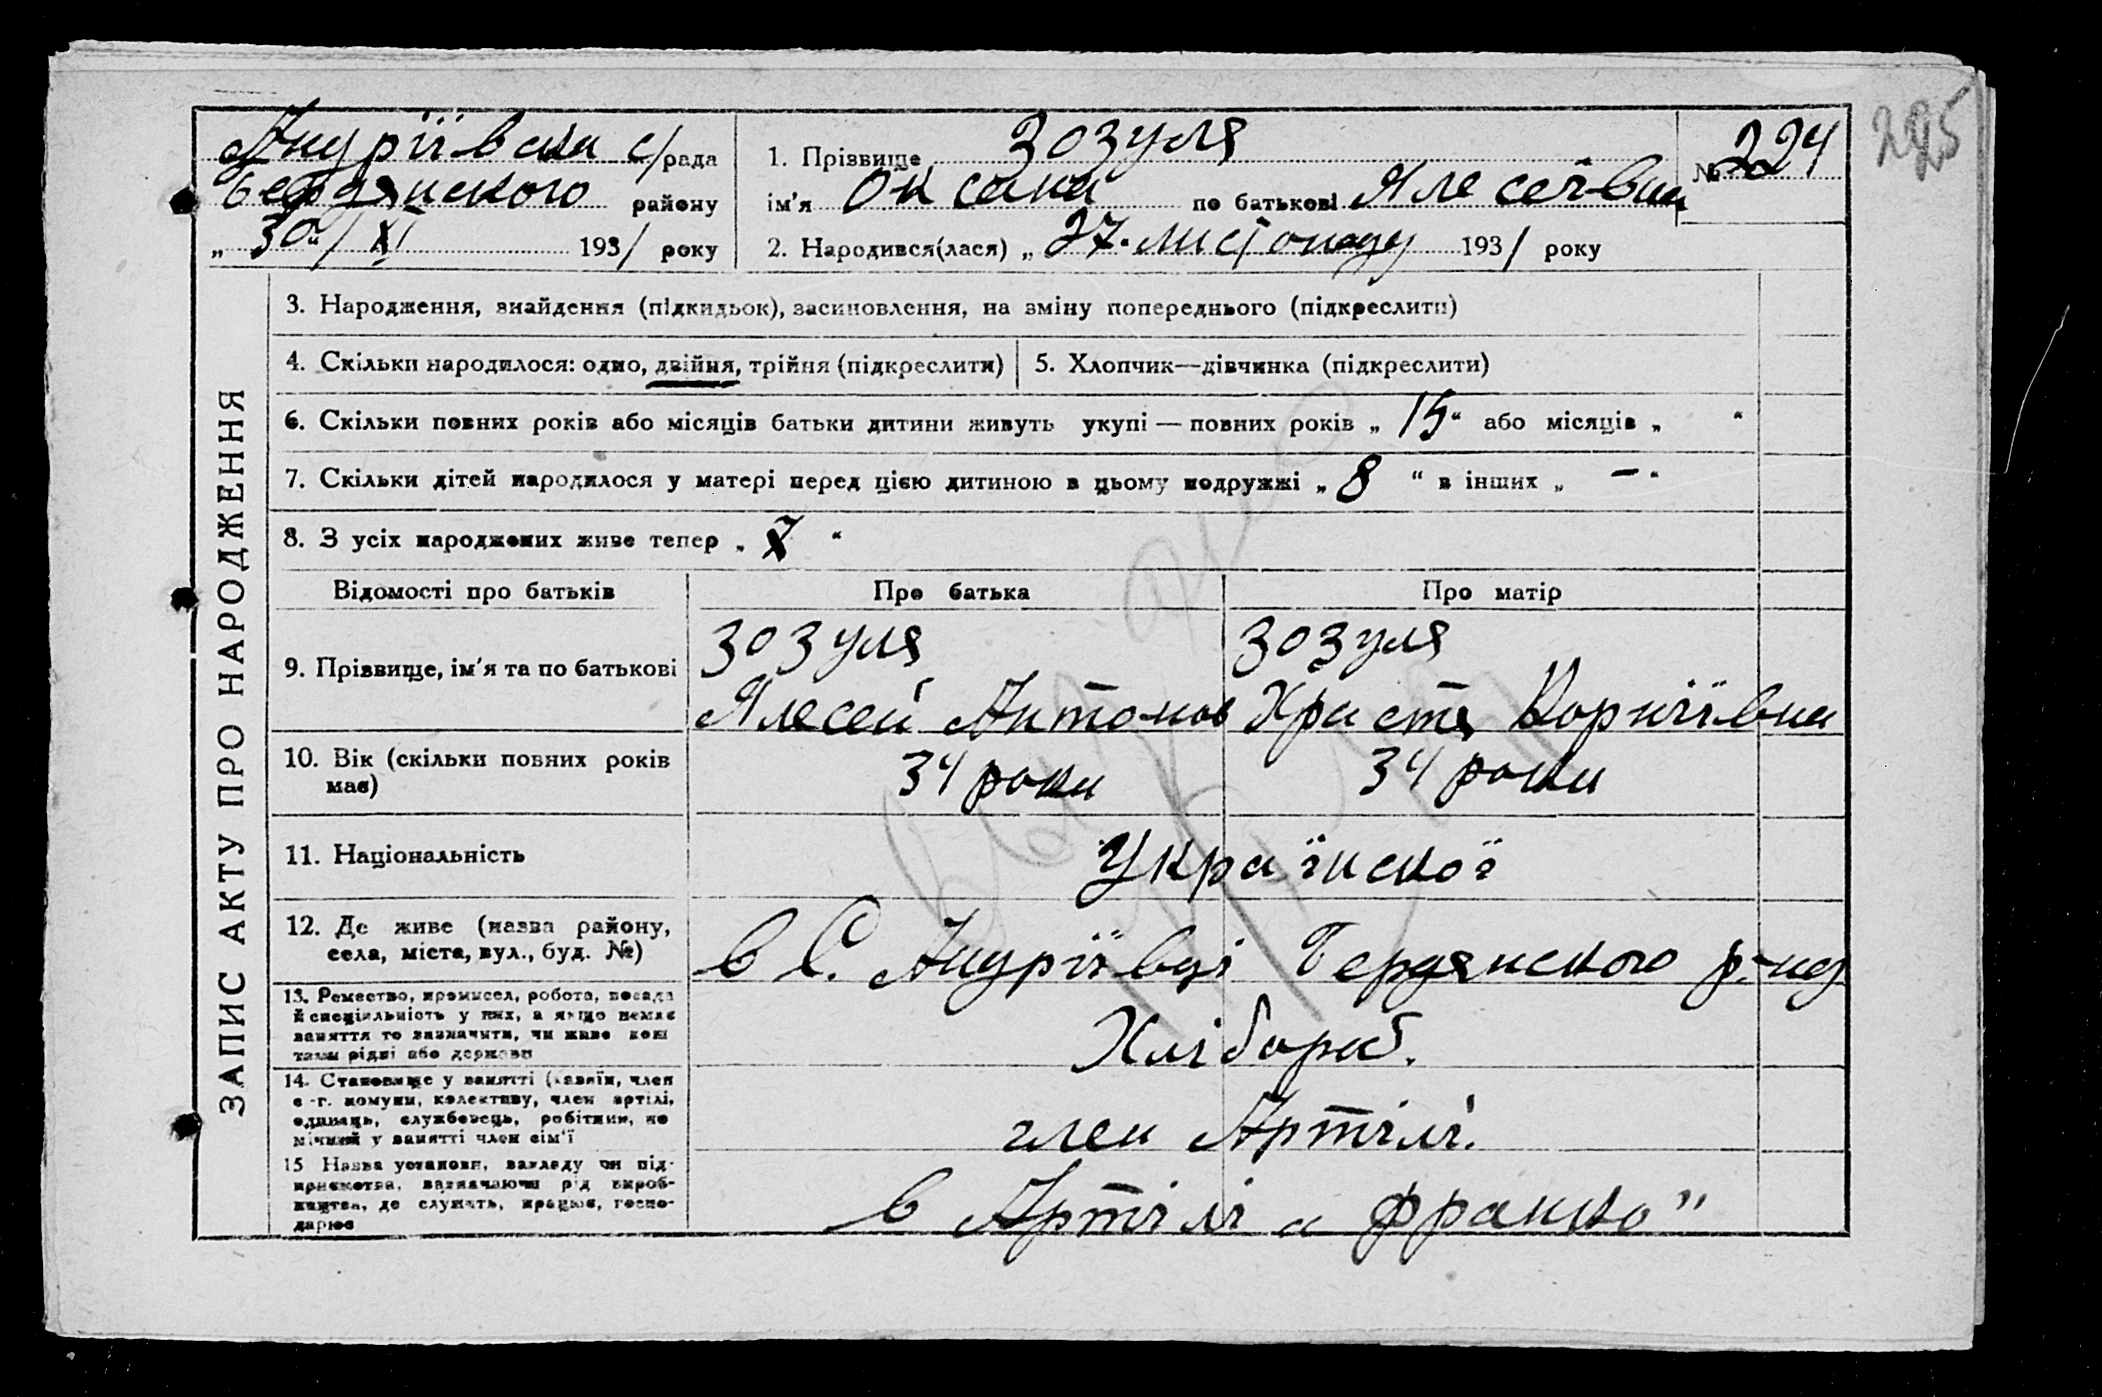 Андріївська с/рада
Бердянського району
„ 30 “ / XI 1931 року
1. Прізвище Зозуля
ім'я Оксана по батькові Алесеївна
2. Народився(лася) „ 27. листопаду 1931 року
№ 224
225
ЗАПИС АКТУ ПРО НАРОДЖЕННЯ
3. Народження, знайдення (підкидьок), засиновлення, на зміну попереднього (підкреслити)
4. Скільки народилося: одно, двійня, трійня (підкреслити)
5. Хлопчик—дівчинка (підкреслити)
6. Скільки повних років або місяців батьки дитини живуть укупі — повних років „ 15 “ або місяців „ “
7. Скільки дітей народилося у матері перед цією дитиною в цьому подружжі „ 8 “ в інших „ — “
8. З усіх народжених живе тепер „ 7 “
Відомості про батьків
Про батька
Про матір
9. Прізвище, ім'я та по батькові
Зозуля
Алесей Антонов
Зозуля
Христя Корніївна
10. Вік (скільки повних років
має)
34 роки
34 роки
11. Національність
Української
12. Де живе (назва району,
села, міста, вул., буд. №)
в С. Андріївці Бердянського р-ну
13. Ремество, промисел, робота, посада
й спеціяльність у них, а якщо немає
заняття то зазначити, чи живе кош
тами рідні або держави
Хлібороб.
14. Становище у занятті (хазяїн, член
с.-г. комуни, колективу, член артілі,
одинець, службовець, робітник, по
мічний у занятті член сім'ї
член Артілі.
15 Назва установи, закладу чи під-
приємства, зазначаючи рід вироб-
ництва, де служить, працює, госпо-
дарює
в Артілі „ Франко "